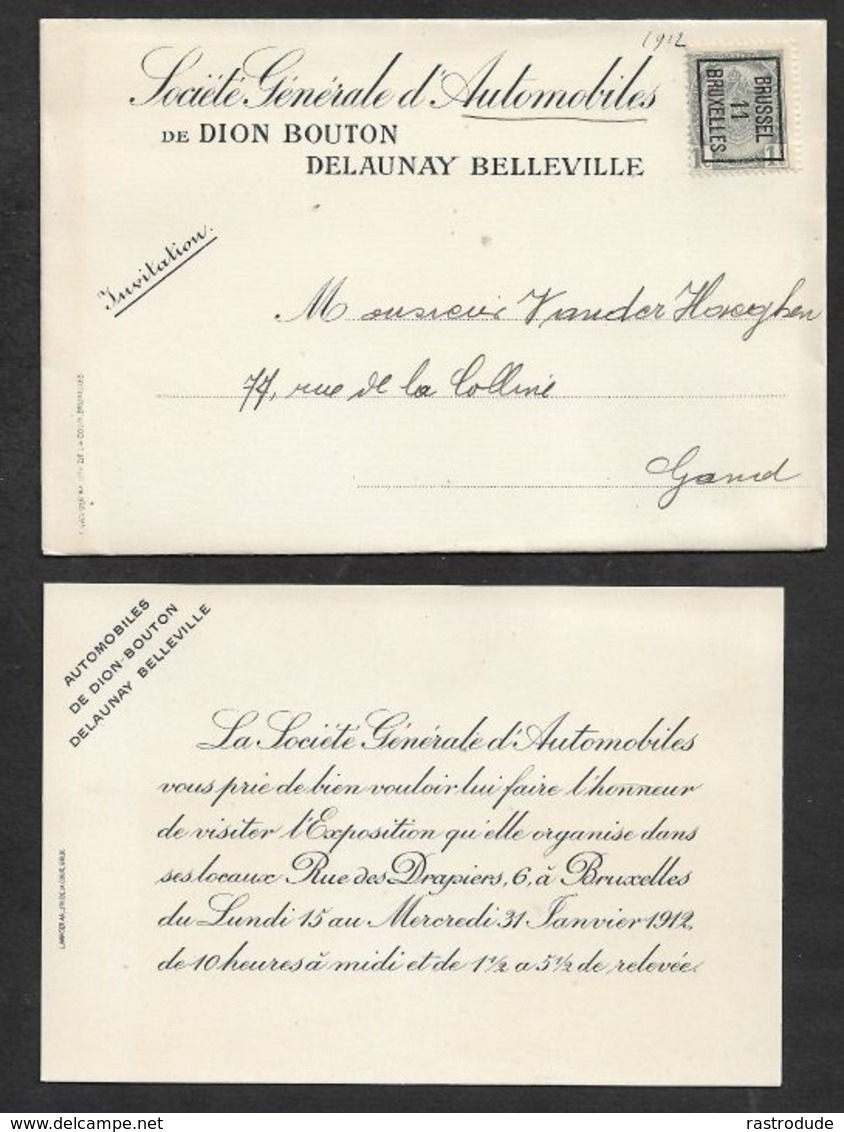 1912
Société Générale d'Automobiles
DE DION BOUTON
DELAUNAY BELLEVILLE
BRUSSEL
11
BRUXELLES
1
Invitation.
Monsieur Vander Haeghen
77, rue de la Colline
Gand
AUTOMOBILES
DE DION-BOUTON
DELAUNAY BELLEVILLE
La Société Générale d'Automobiles
vous prie de bien vouloir lui faire l'honneur
de visiter l'Exposition qu'elle organise dans
ses locaux Rue des Drapiers, 6, à Bruxelles
du Lundi 15 au Mercredi 31 Janvier 1912,
de 10 heures à midi et de 1½ a 5½ de relevée.
delcampe.net
rastrodude